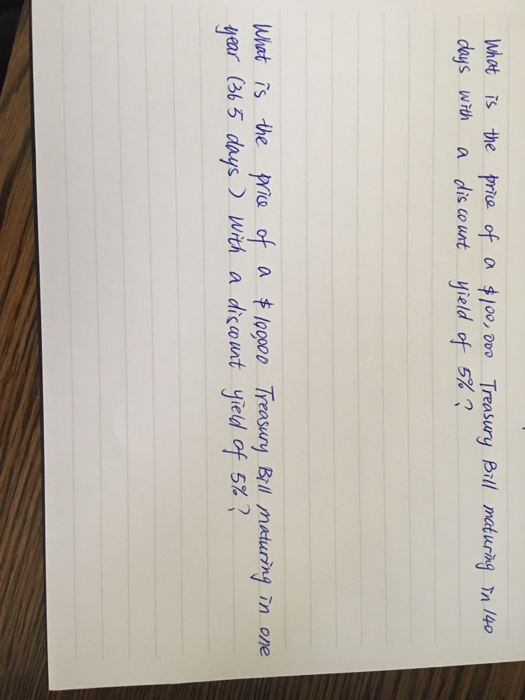 What is the price of a $100,000 Treasury Bill maturing in 140
days with a discount yield of 5%?
What is the price of a $100,000 Treasury Bill maturing in one
year (365 days) with a discount yield of 5%?